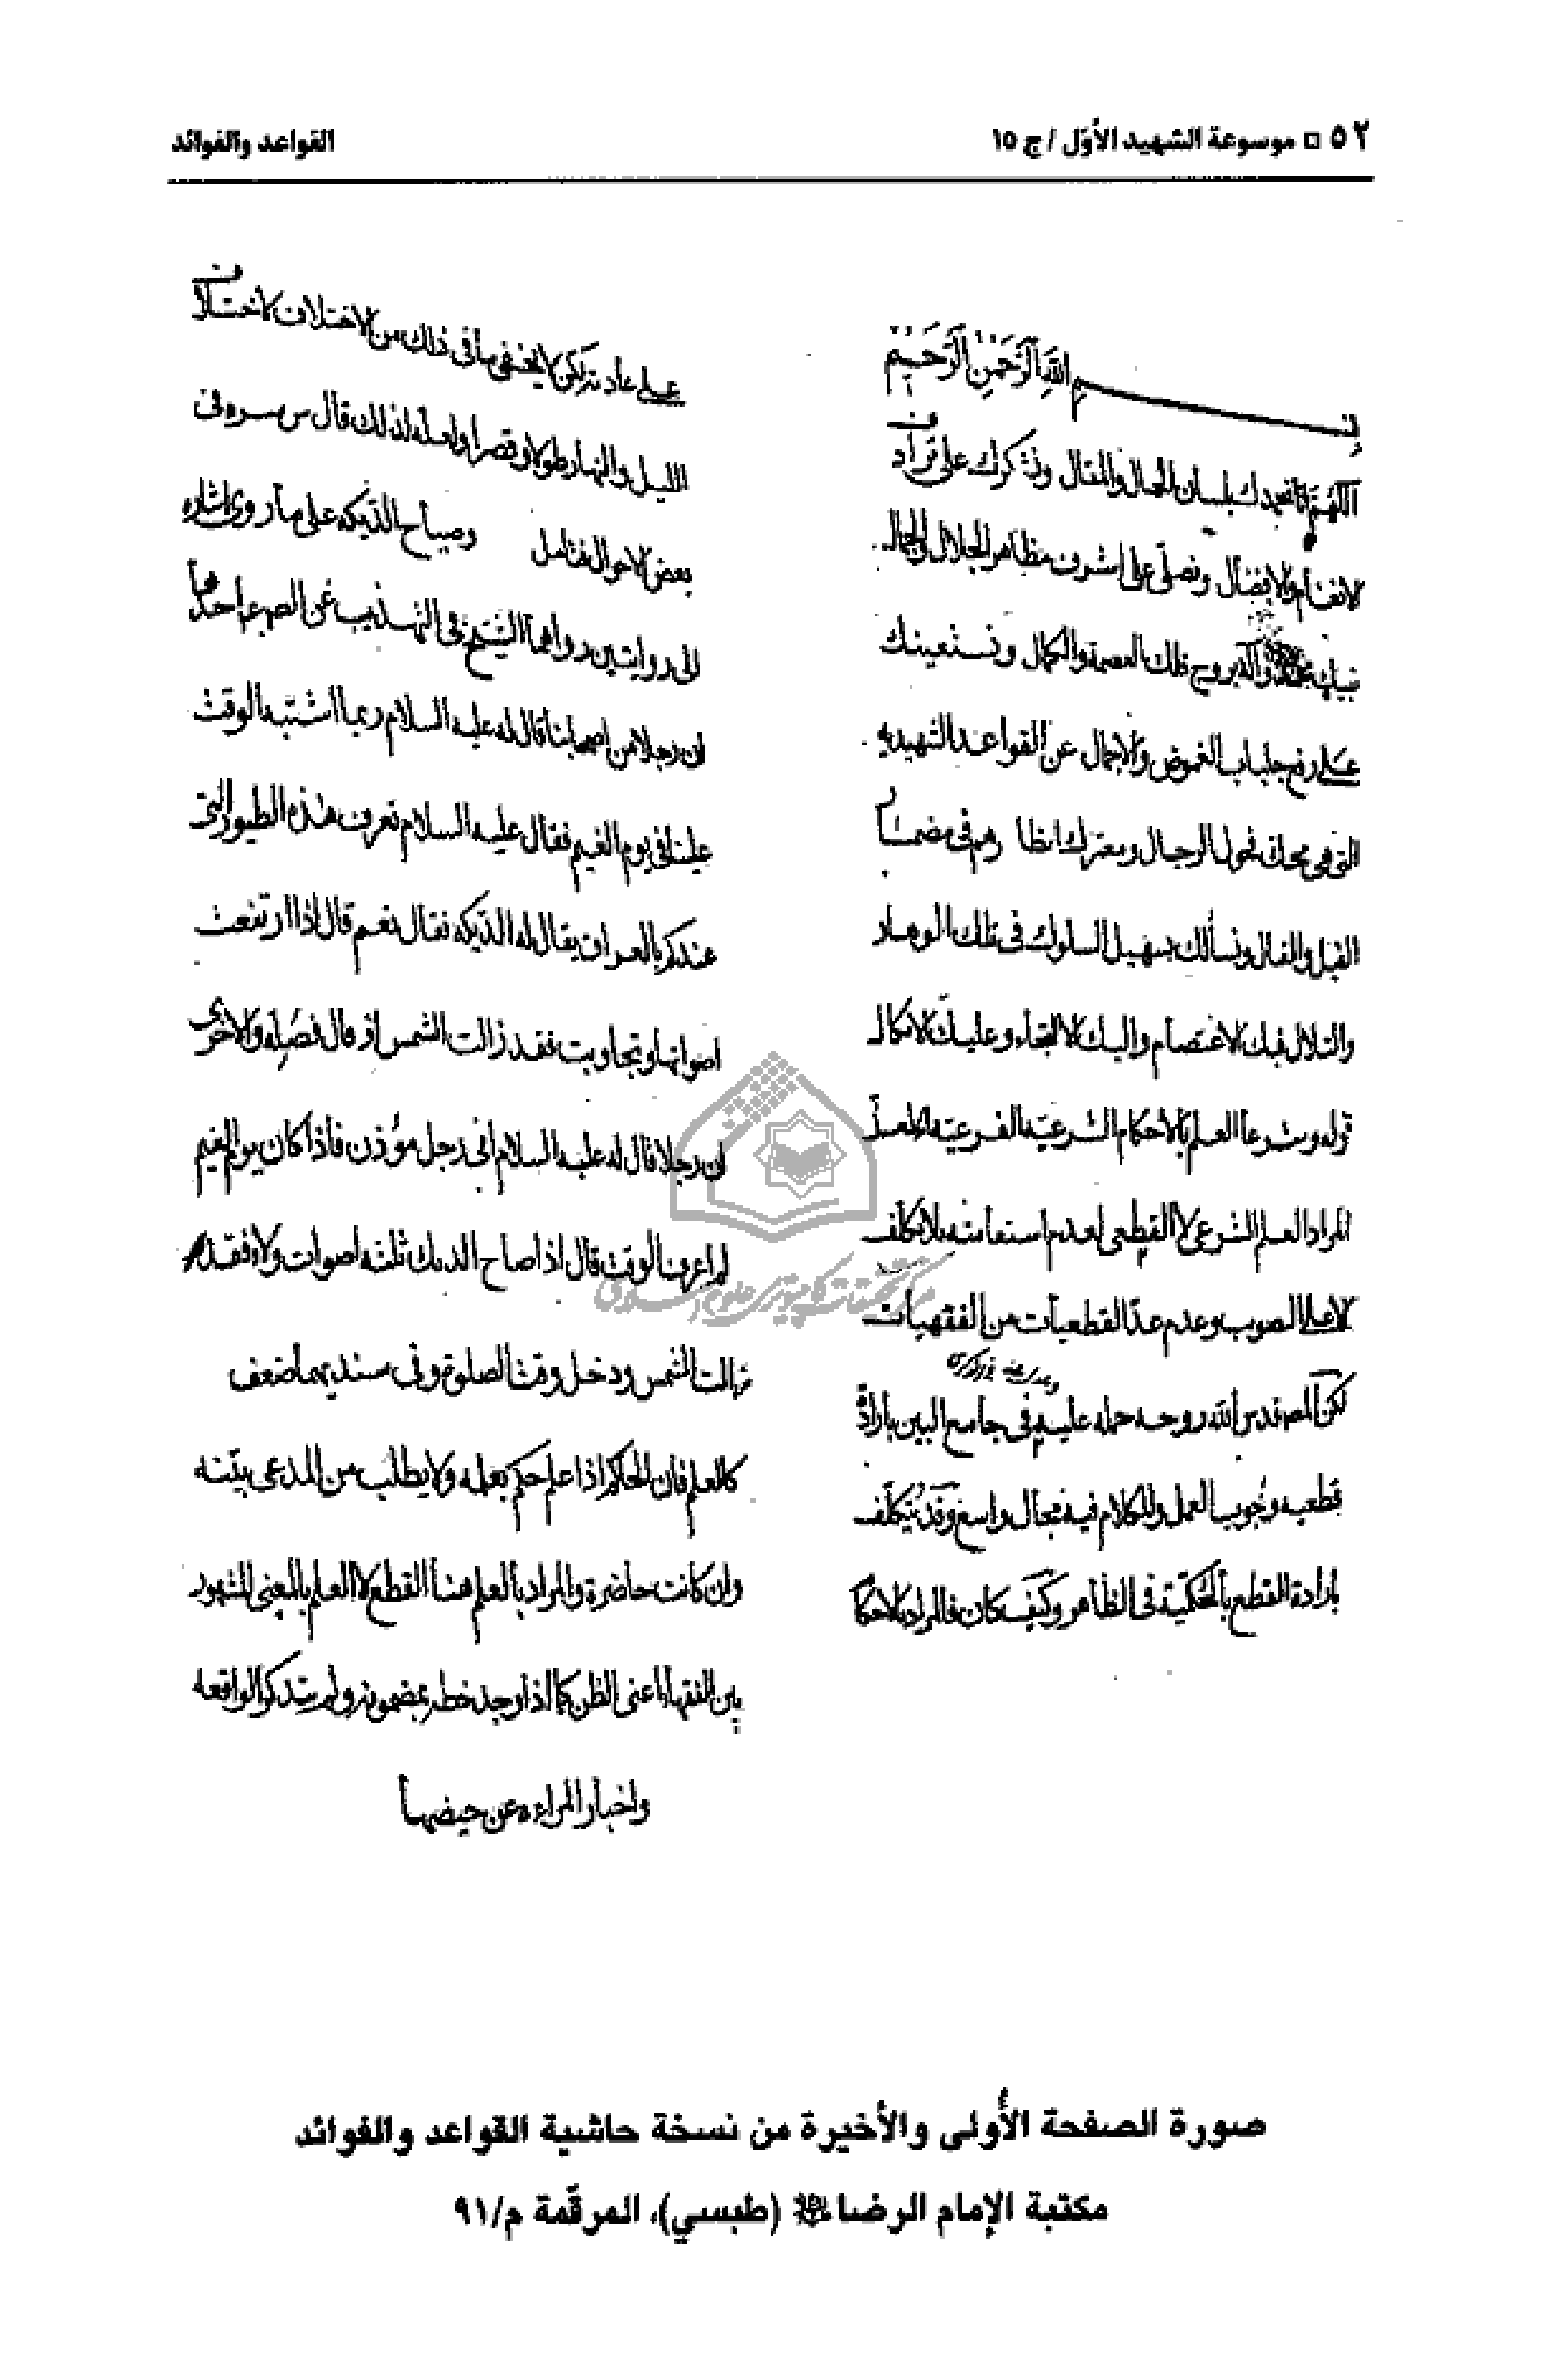 ٥٢ □ موسوعة الشهيد الأوّل / ج ١٥
القواعد والفوائد
بسم الله الرحمن الرحيم
اللهم انا نحمدك بلسان الحال والمقال ونشكرك على ترادف
الانعام والافضال ونصلّي على اشرف مظاهر الجلال والجمال
نبيك محمد وآله بروج فلك العصمة والكمال ونستعينك
على رفع جلباب الغموض والاجمال عن القواعد الشهيديه
التي هي محك فحول الرجال ومعترك انظارهم في مضمار
القيل والقال ونسألك تسهيل السلوك في تلك الوهاد
والتلال فبك الاعتصام واليك الالتجاء وعليك الاتكال
قوله وشرعا العلم بالاحكام الشرعيّة الفرعيّة
المراد العلم الشرعي لا القطعي لعدم استقامته بلا تكلف
الا على التصويب وعدم عدّ القطعيات من الفقهيات
لكن المصـ قدس الله روحه حمله عليه في جامع البين بارادة
قطعيه وجوب العمل وللكلام فيه مجال واسع وقد يتكلف
بارادة القطع في الظاهر وكيف كان فالمراد بالاحكا
على عادته لكن لا يخفى ما في ذلك من الاختلاف لاختلاف
الليل والنهار طولا وقصرا ولعله لذلك قال س سره في
بعض الاحوال فتأمل وصياح الديكه على ما روى اشاره
الى روايتين رواهما الشيخ في التهذيب عن الصـ ع احدهما
ان رجلا من اصحابنا قال له عليه السلام ربما اشتبه الوقت
علينا في يوم الغيم فقال عليه السلام تعرف هذه الطيور التي
عندكم بالعراق يقال له الديكه فقال نعم قال اذا ارتفعت
اصواتها وتجاوبت فقد زالت الشمس او قال فصله والاخرى
ان رجلا قال له عليه السلام اني رجل مؤذن فاذا كان يوم الغيم
لم اعرف الوقت قال اذا صاح الديك ثلثه اصوات ولاء فقد
زالت الشمس ودخل وقت الصلوة وفي سنديهما ضعف
كالعلم فان الحاكم اذا علم حكم بعلمه ولا يطلب من المدعي بيّنه
وان كانت حاضرة والمراد بالعلم هنا القطع لا العلم بالمعنى المشهور
بين الفقهاء اعني الظن كما اذا وجد خطه بمضمونه ولم يتذكر الواقعه
واخبار المراءه عن حيضها
مركز تحقيقات كامپيوترى علوم اسلامى
صورة الصفحة الأُولى والأخيرة من نسخة حاشية القواعد والفوائد
مكتبة الإمام الرضا (طبسي)، المرقّمة م/٩١